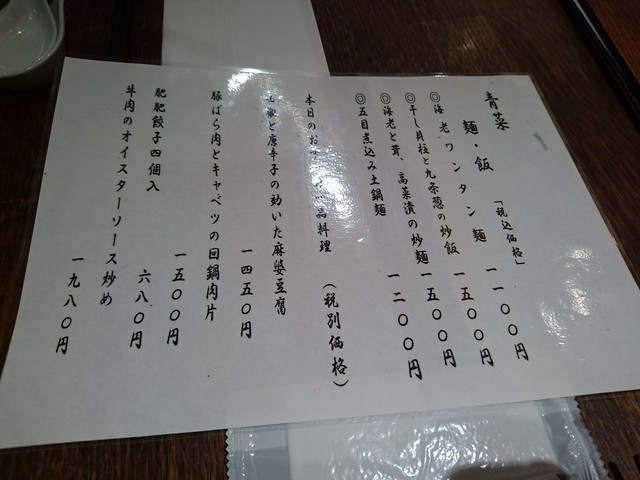 青菜
麺・飯 「税込価格」
◎海老ワンタン麺 一一〇〇円
◎干し貝柱と九条葱の炒飯 一五〇〇円
◎海老と茸、高菜漬の炒麺 一五〇〇円
◎五目煮込み土鍋麺 一二〇〇円
本日のお 品料理 (税別価格)
と唐辛子の効いた麻婆豆腐
一四五〇円
豚ばら肉とキャベツの回鍋肉片
一五〇〇円
肥肥餃子四個入 六八〇円
牛肉のオイスターソース炒め
一九八〇円